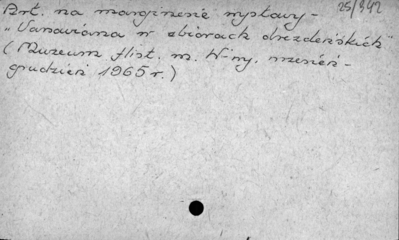 Art. na marginesie wystawy -
25/342
"Varsaviana w zbiorach drezdeńskich"
(Muzeum Hist. m. W-wy, wrzesień -
grudzień 1965 r.)